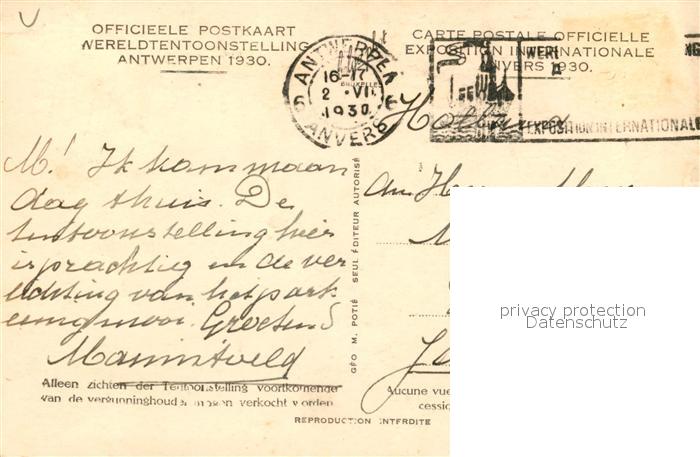 OFFICIEELE POSTKAART
WERELDTENTOONSTELLING
ANTWERPEN 1930.
CARTE POSTALE OFFICIELLE
EXPOSITION INTERNATIONALE
ANVERS 1930.
ANTWERPEN
16-17
2 VII
1930
6 6
ANVERS
WERE
EXPOSITION INTERNATIONALE
M! Ik kom maan
dag thuis. De
tentoonstelling hier
is prachtig en de ver
lichting van het park
enig mooi. Groeten
Alleen zichten der Tentoonstelling voortkomende
van de vergunninghouder mogen verkocht worden
GÉO M. POTIÉ SEUL ÉDITEUR AUTORISÉ
Aucune vue
cessi
REPRODUCTION INTERDITE
privacy protection
Datenschutz